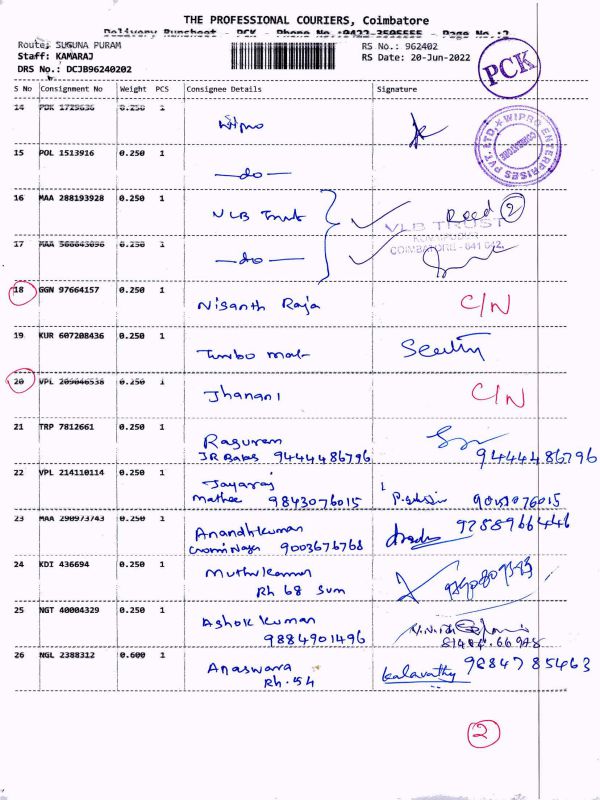 THE PROFESSIONAL COURIERS, Coimbatore
Delivery Runsheet - PCK - Phone No.:0422-3505555 - Page No.:2
Route: SUGUNA PURAM
Staff: KAMARAJ
DRS No.: DCJB96240202
RS No.: 962402
RS Date: 20-Jun-2022
PCK
S No Consignment No Weight PCS Consignee Details Signature
14 PDK 1729636 0.250 1 Wipro
WIPRO ENTERPRISES PVT. LTD.
15 POL 1513916 0.250 1 —do—
16 MAA 288193928 0.250 1 VLB Trust Recd 2
VLB TRUST
COIMBATORE - 641 042.
17 MAA 0.250 1 —do—
18 GGN 97664157 0.250 1 Nisanth Raja C/N
19 KUR 607208436 0.250 1
20 VPL 209046538 0.250 1 Jhanani C/N
21 TRP 7812661 0.250 1 Raguram
9444486796 9444486796
22 VPL 214110114 0.250 1 Jayaraj
Mathee 9843076015
23 MAA 290973743 0.250 1 Anandhkumar
9003676768
24 KDI 436694 0.250 1 Muthukumar
Rh 68
25 NGT 40004329 0.250 1 Ashok Kumar
9884901496
26 NGL 2388312 0.600 1 Anaswara Kalavathy 98847 85463
Rh.54
2